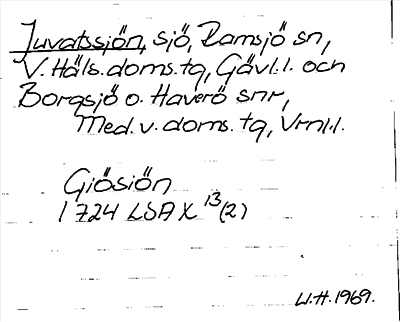 Juvatssjön, sjö, Ramsjö sn,
V. Häls. doms. tg, Gävl. l. och
Borgsjö o. Haverö snr,
Med. v. doms. tg, Vrnl. l.
Giösiön
1724 LSA X 13(2)
W.H. 1969.